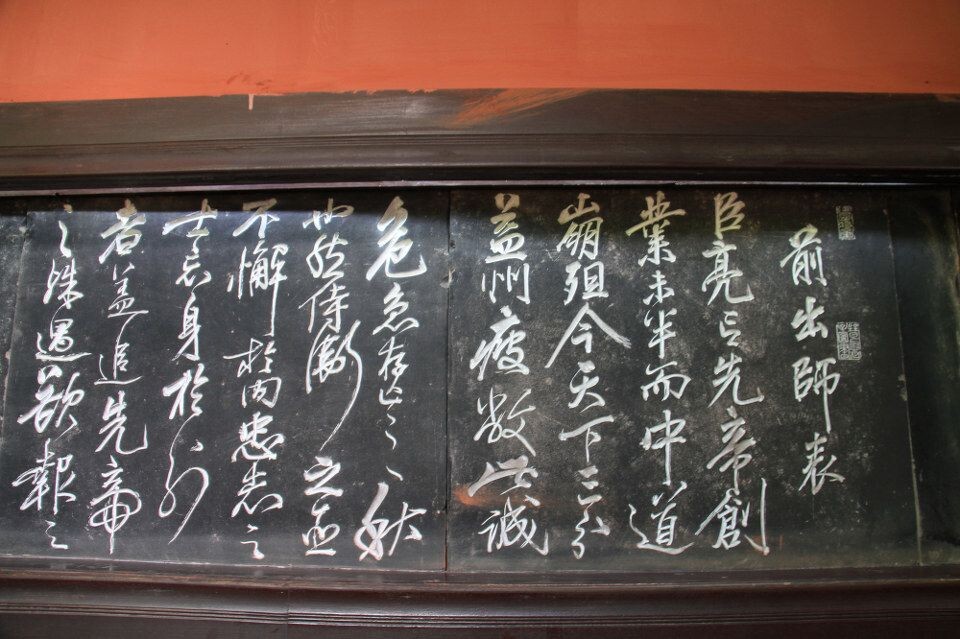 前出師表
臣亮言先帝創
業未半而中道
崩殂今天下三分
益州疲敝此誠
危急存亡之秋
也然侍衛之臣
不懈於內忠志之
士忘身於外
者蓋追先帝
之殊遇欲報之